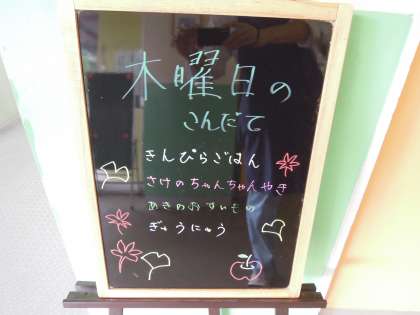 木曜日の
こんだて
きんぴらごはん
さけのちゃんちゃんやき
あきのおすいもの
ぎゅうにゅう